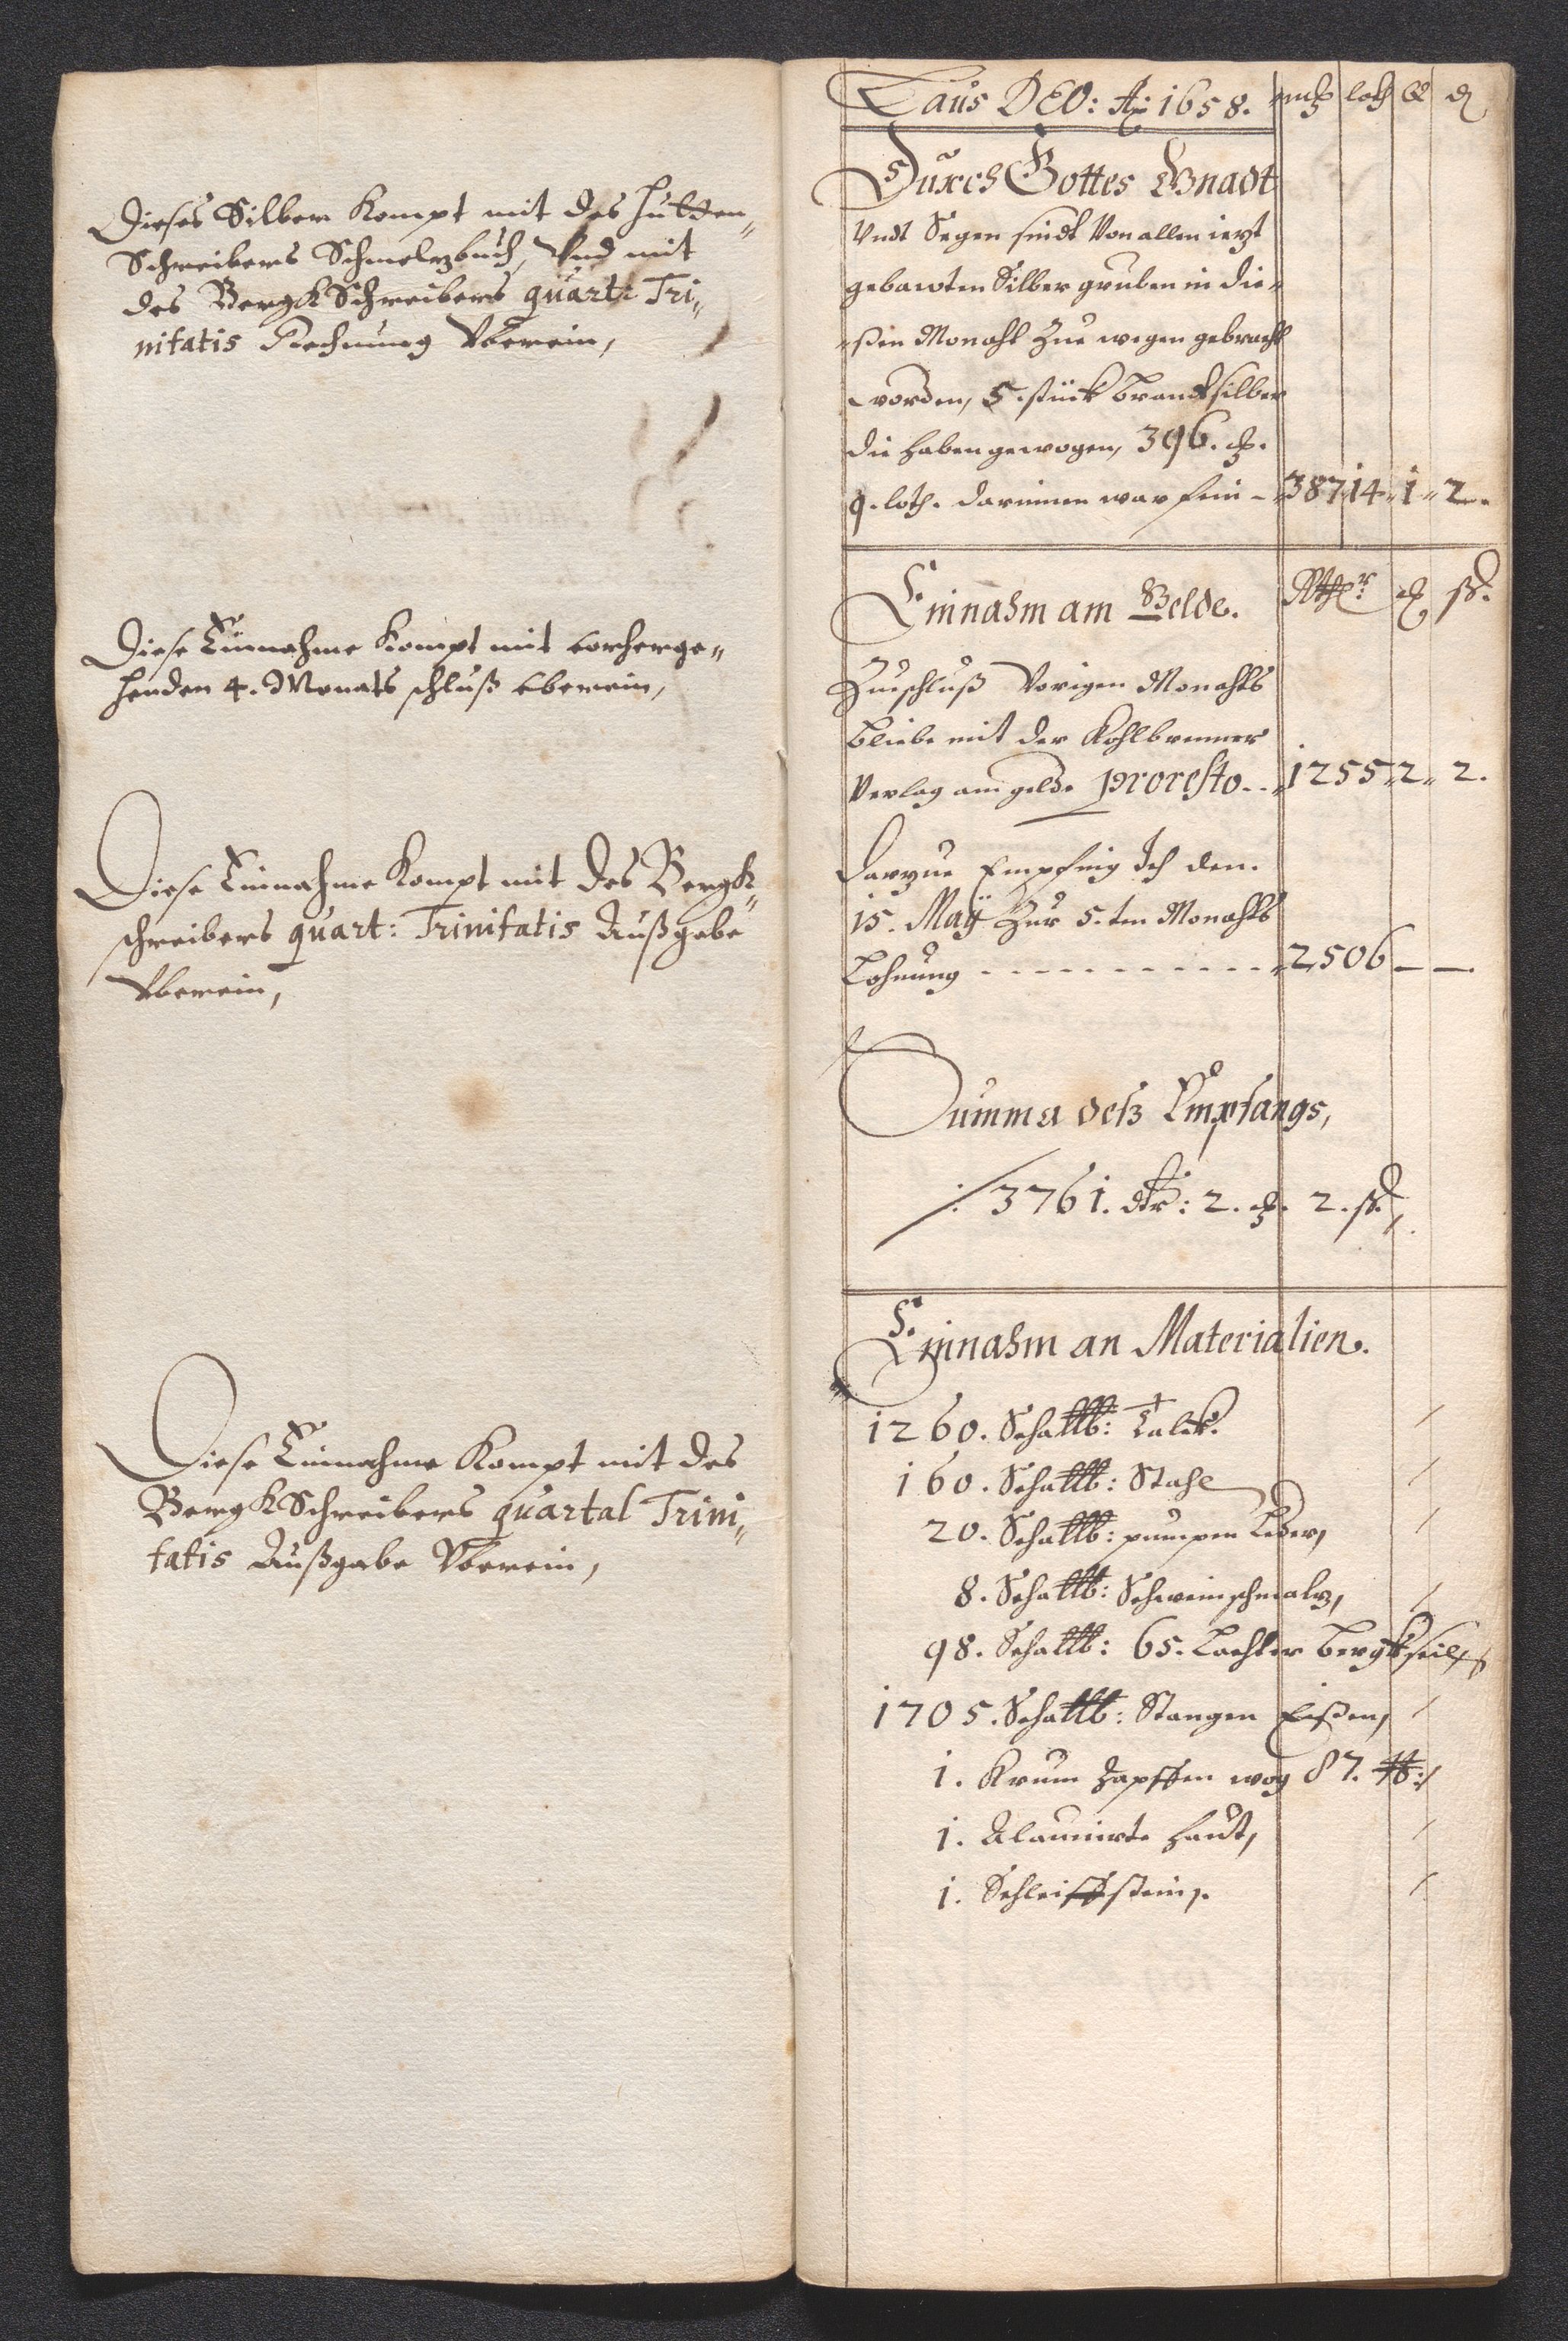 Dieses Silber Kompt mit des Hutten„
Schreibers Schmelzbuch, Und mit
des BergkSchreibers quart: Tri„
nitatis Rechnung Uberein,
Diese Einnahme Kompt mit vorherge„
henden 4. Monats schluß Uberein,
Diese Einnahme Kompt mit des Bergk„
schreibers quart: Trinitatis Außgabe
Uberein,
Diese Einnahme Kompt mit des
BergkSchreibers quartal Trini„
tatis Außgabe Uberein,
Laus DEO: Aº 1658. loth
Durch Gottes Gnadt
Undt Segen sindt Von allen iezt
gebawten Silber gruben in die„
„ßen Monaht Zue wegen gebracht
worden, 5. stück brandtsilber
die haben gewogen, 396. mk.
9. loth. darinnen war fein - „387„14„1„2„
Einnahm am Gelde. Rthlr mk ß.
Zueschluß Vorigen Monahts
bliebe mit der Kohlbrenner
Verlag am gelde proresto.. „1255„2„2.
Darzue Empfing Ich den.
15. Maÿ Zur 5.ten Monahts
Lohnung - - - - - - - - - - „2506 — —
Summa deß Empfangs,
/: 3761. dlr: 2. mk. 2. ß.
Einnahm an Materialien.
1260. Schallb: Talck.
160. Schallb: Stahl
20. Schallb: pumpen Leder,
8. Schallb: Schweinschmalz,
98. Schallb: 65. Lachter bergkseil,
1705. Schallb: Stangen Eißen,
1. Krum Zapffen wog 87. lb:
1. Alaunirte haudt,
1. Schleiffstein,.